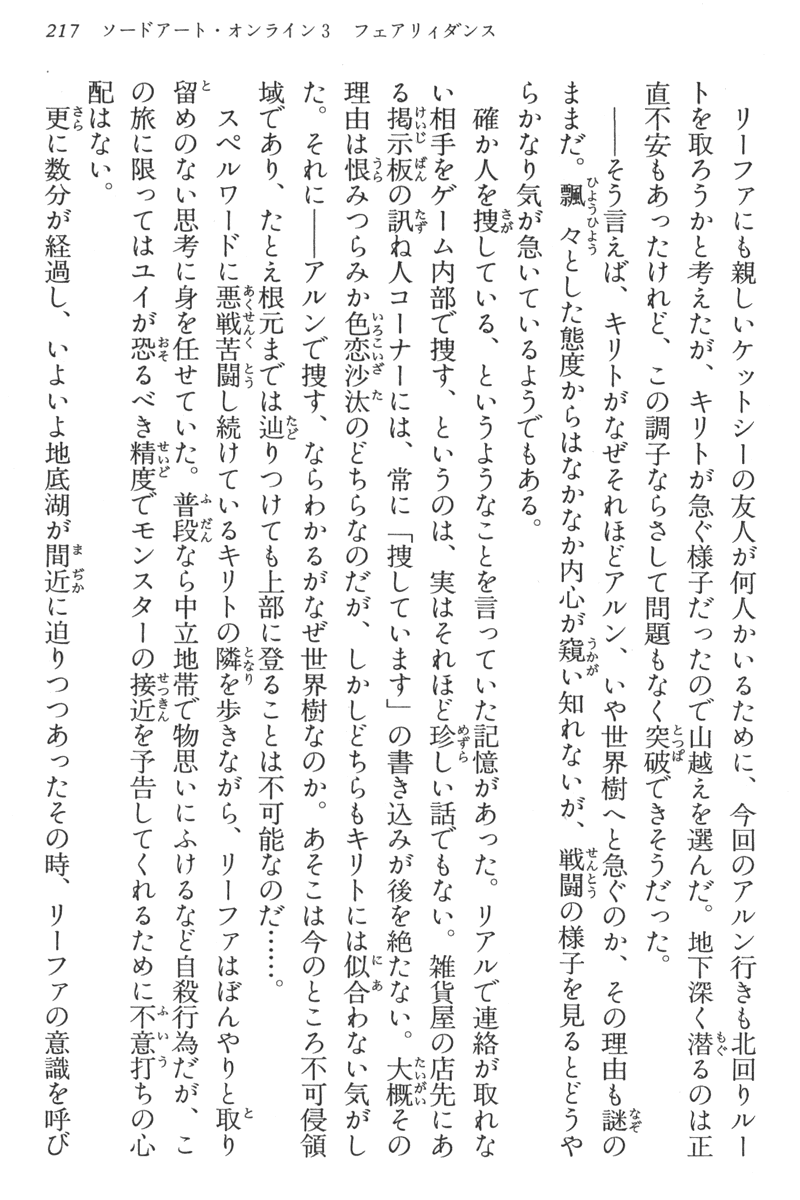 217　ソードアート・オンライン3　フェアリィダンス
リーファにも親しいケットシーの友人が何人かいるために、今回のアルン行きも北回りルー
トを取ろうかと考えたが、キリトが急ぐ様子だったので山越えを選んだ。地下深く潜るのは正
直不安もあったけれど、この調子ならさして問題もなく突破できそうだった。
――そう言えば、キリトがなぜそれほどアルン、いや世界樹へと急ぐのか、その理由も謎の
ままだ。飄々とした態度からはなかなか内心が窺い知れないが、戦闘の様子を見るとどうや
らかなり気が急いているようでもある。
確か人を捜している、というようなことを言っていた記憶があった。リアルで連絡が取れな
い相手をゲーム内部で捜す、というのは、実はそれほど珍しい話でもない。雑貨屋の店先にあ
る掲示板の訊ね人コーナーには、常に「捜しています」の書き込みが後を絶たない。大概その
理由は恨みつらみか色恋沙汰のどちらなのだが、しかしどちらもキリトには似合わない気がし
た。それに――アルンで捜す、ならわかるがなぜ世界樹なのか。あそこは今のところ不可侵領
域であり、たとえ根元までは辿りつけても上部に登ることは不可能なのだ……。
スペルワードに悪戦苦闘し続けているキリトの隣を歩きながら、リーファはぼんやりと取り
留めのない思考に身を任せていた。普段なら中立地帯で物思いにふけるなど自殺行為だが、こ
の旅に限ってはユイが恐るべき精度でモンスターの接近を予告してくれるために不意打ちの心
配はない。
更に数分が経過し、いよいよ地底湖が間近に迫りつつあったその時、リーファの意識を呼び